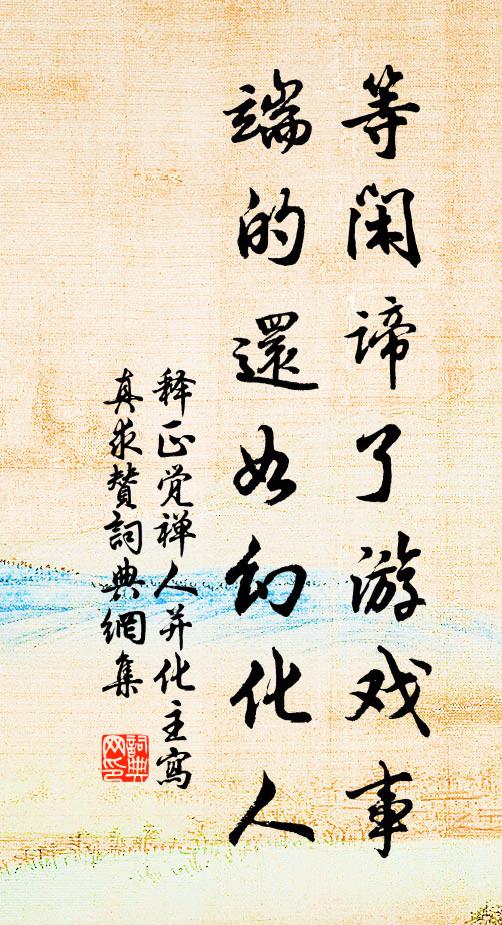 等闲谛了游戏事
端的還如幻化人
释正觉禅人并化主寫
真求赞詞典網集
詞典网印